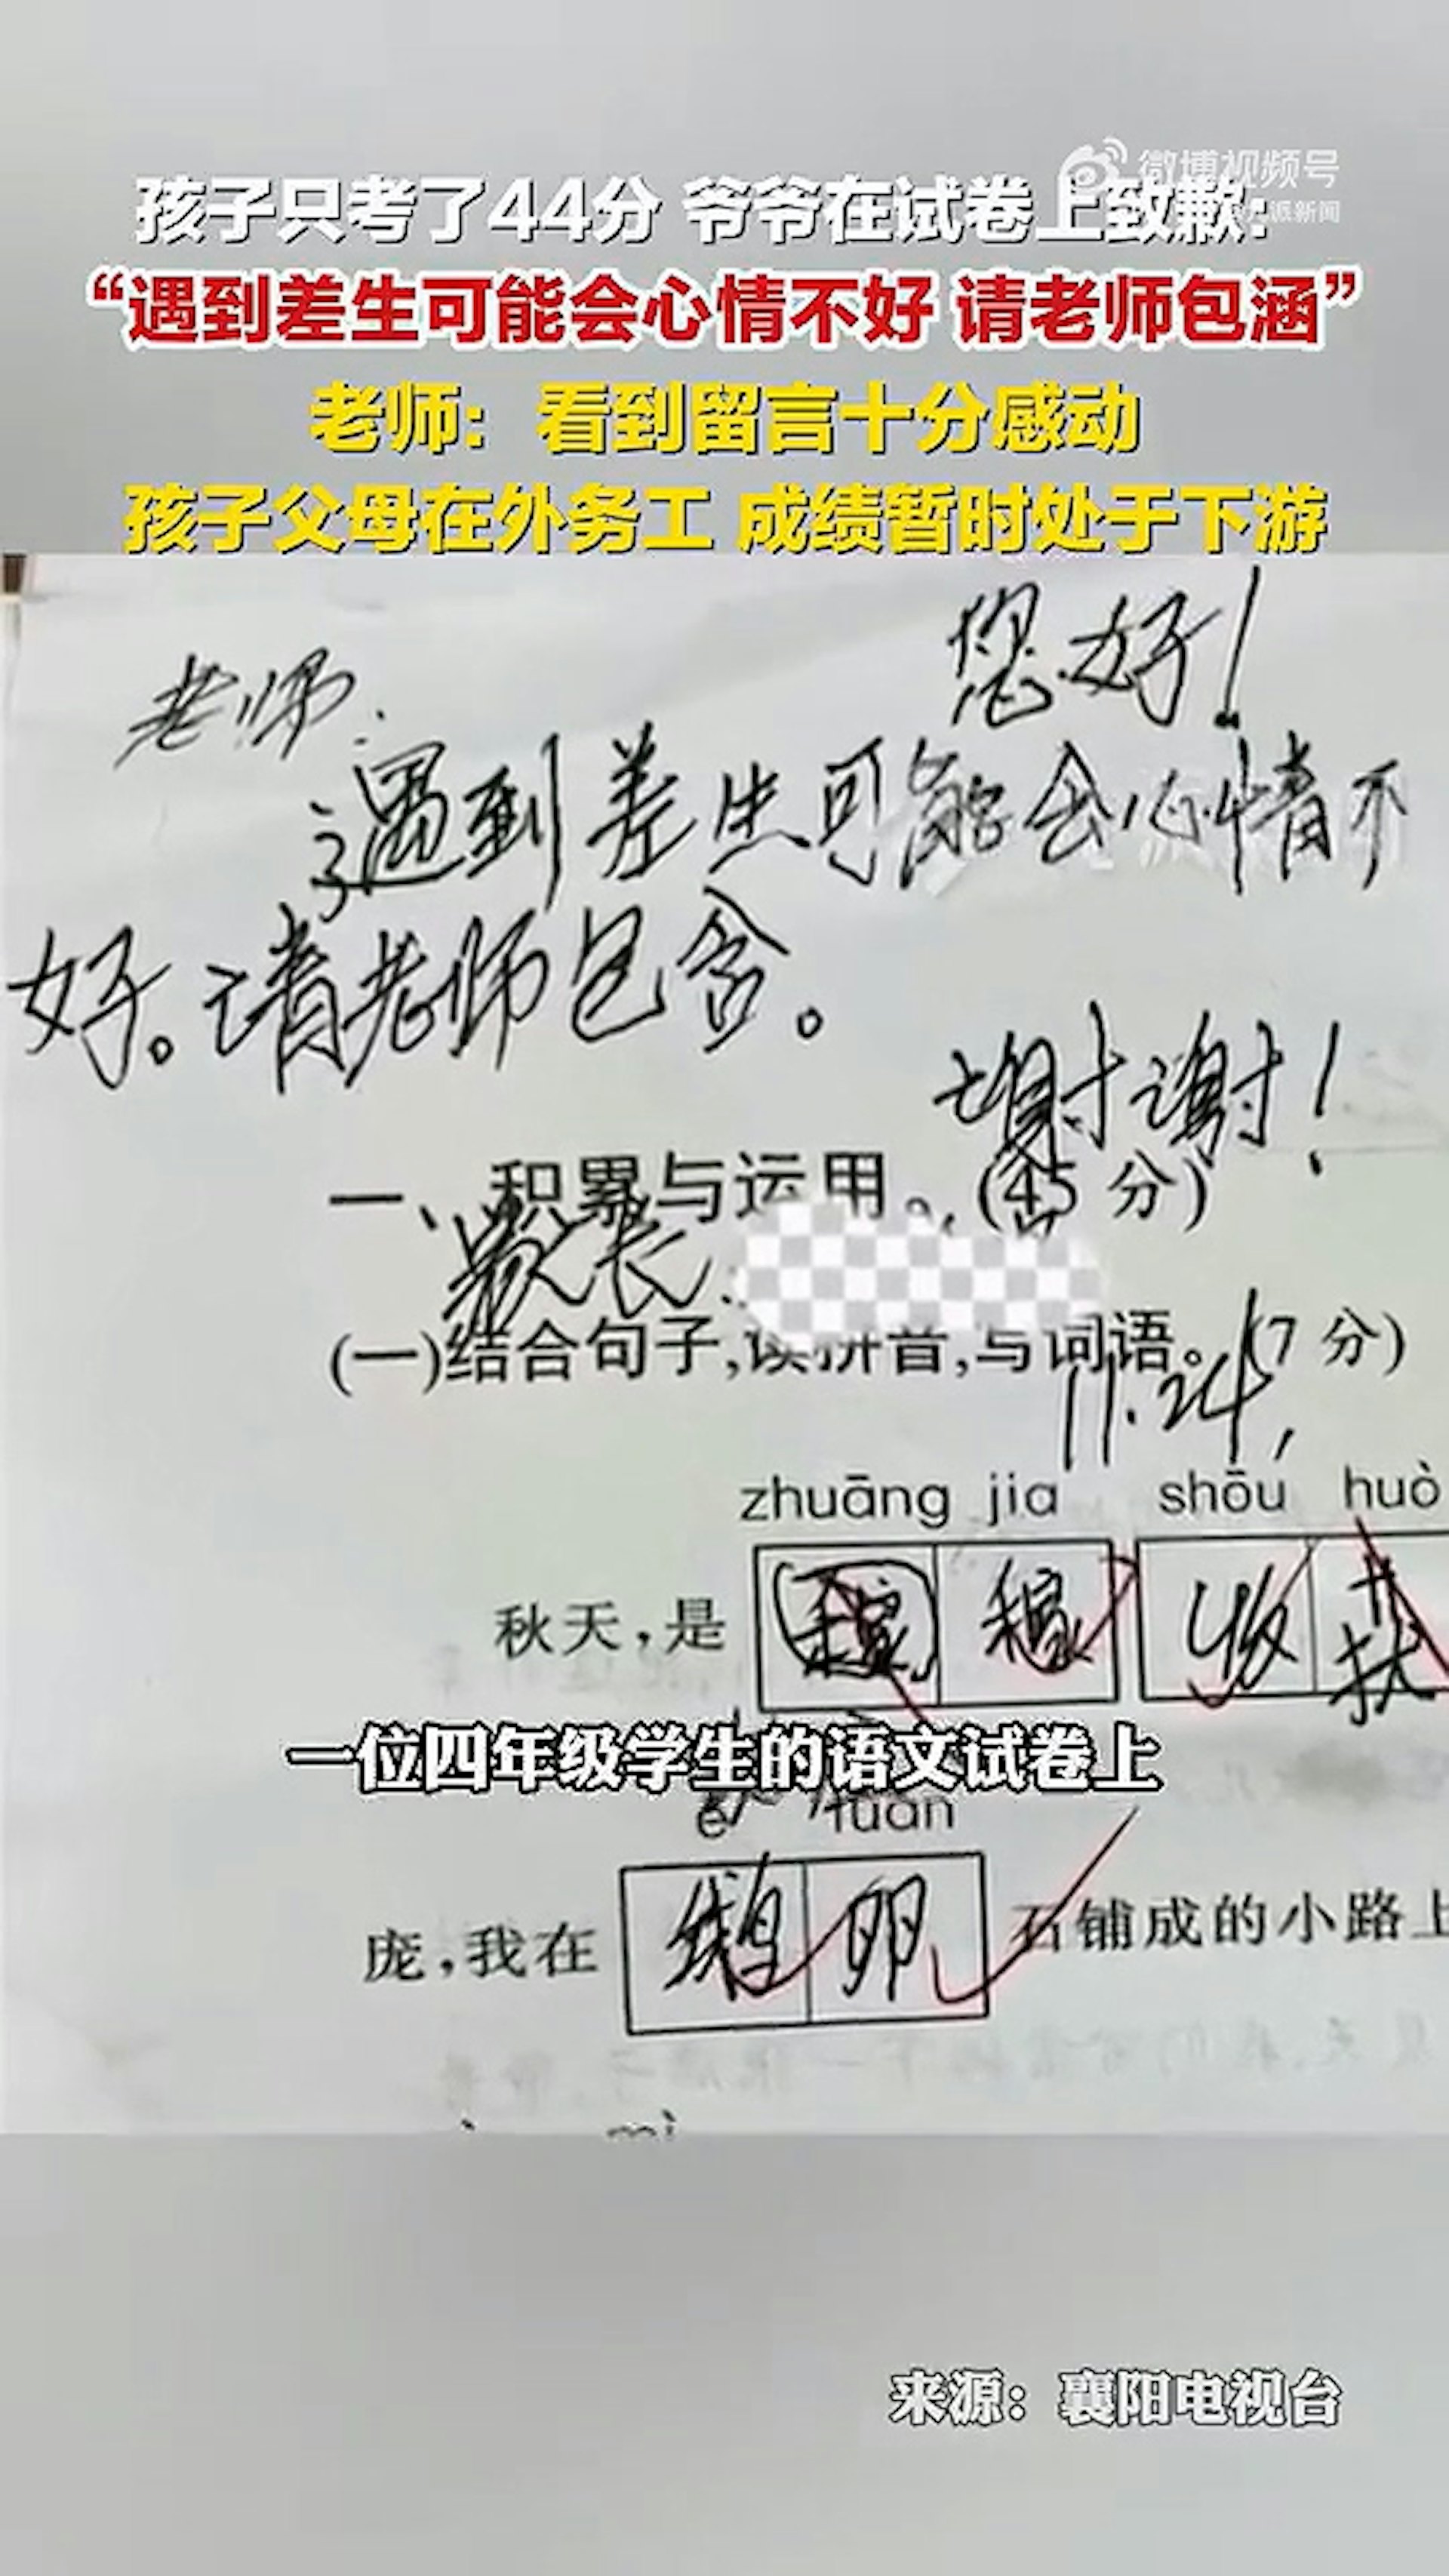 微博视频号
孩子只考了44分 爷爷在试卷上致歉:
“遇到差生可能会心情不好 请老师包涵”
老师：看到留言十分感动
孩子父母在外务工 成绩暂时处于下游
老师: 您好!
遇到差生可能会心情不
好。请老师包含。
谢谢!
一、积累与运用。(45 分)
家长:
(一)结合句子,读拼音,写词语。(7 分)
11.24
zhuāng jia shōu huò
秋天,是 稼 收
一位四年级学生的语文试卷上
é luǎn
庞,我在 鹅卵 石铺成的小路上
来源：襄阳电视台